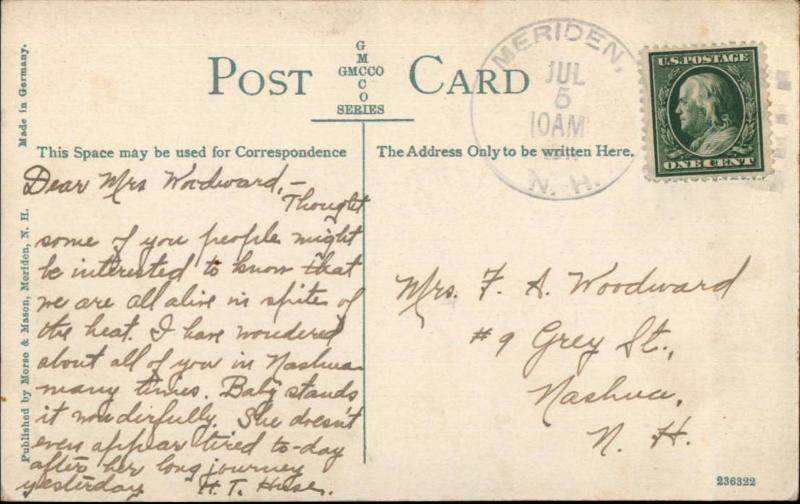 POST CARD
G
M
GMCCO
C
O
SERIES
This Space may be used for Correspondence
The Address Only to be written Here.
Made in Germany.
Published by Morse & Mason, Meriden, N. H.
MERIDEN,
JUL
5
10AM
N. H.
U.S. POSTAGE
ONE CENT
Dear Mrs Woodward,—
Thought
some of you people might
be interested to know that
we are all alive in spite of
the heat. I have wondered
about all of you in Nashua
many times. Baby stands
it wonderfully. She doesn't
even appear tired to-day
after her long journey
yesterday H. T.
Mrs. F. A. Woodward
#9 Grey St.,
Nashua,
N. H.
236322